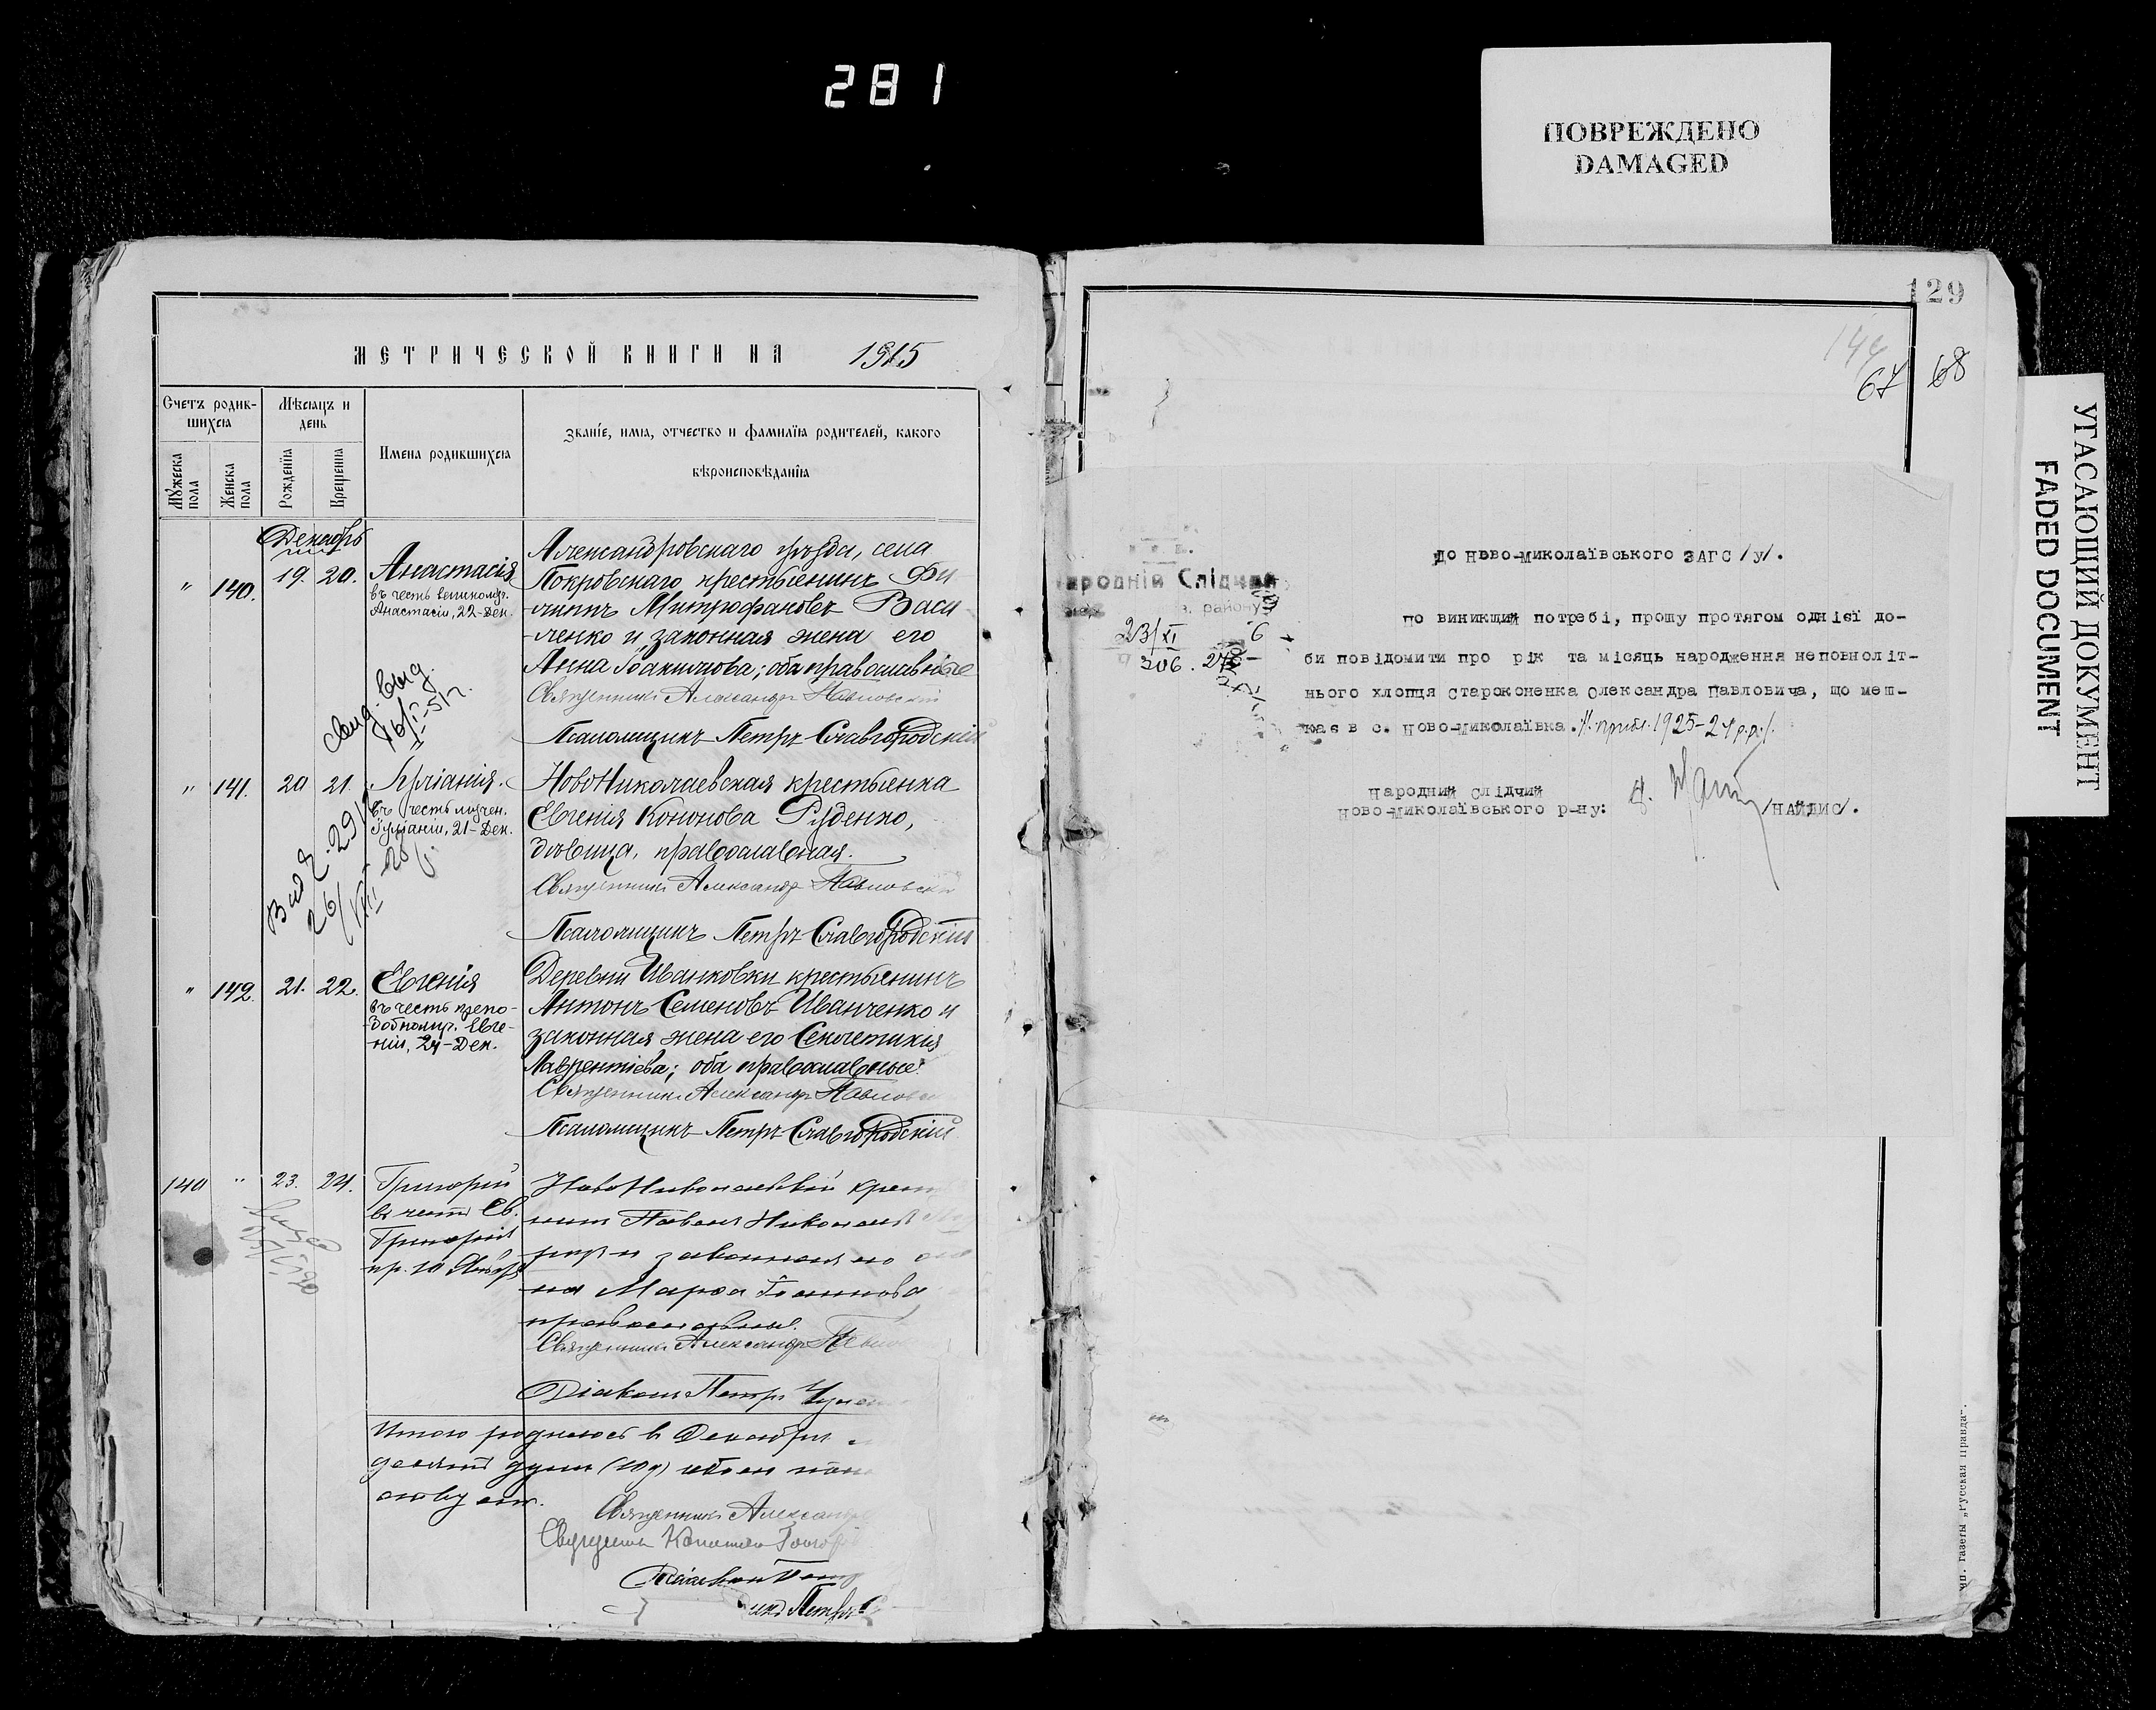 281
ПОВРЕЖДЕНО
DAMAGED
УГАСАЮЩИЙ ДОКУМЕНТ
FADED DOCUMENT
МЕТРИЧЕСКОЙ КНИГИ НА 1915
Счетъ родив-
шихсѧ
Мѣсѧцъ и
день
Имена родившихсѧ
Званіе, имѧ, отчество и фамиліѧ родителей, какого
вѣроисповѣданіѧ
Мужеска
пола
Женска
пола
Рожденіѧ
Крещеніѧ
Декабрь
" 140. 19. 20. Анастасія
въ честь великомуч.
Анастасіи, 22-Дек.
Александровскаго уѣзда, села
Покровскаго крестьянинъ Фи-
липпъ Митрофановъ Васи-
-ленко и законная жена его
Анна Іоакимова; оба православные
Священникъ Александръ Павловскій
Псаломщикъ Петръ Славгородскій
" 141. 20 21. Іуліанія.
въ честь мучен.
Іуліаніи, 21-Дек.
НовоНиколаевская крестьянка
Евгенія Кононова Руденко,
дѣвица, православная.
Священникъ Александръ Павловскій
Псаломщикъ Петръ Славгородскій
" 142. 21. 22. Евгенія
въ честь препо-
добномуч. Евге-
ніи, 24-Дек.
Деревни Иванковки крестьянинъ
Антонъ Семеновъ Иванченко и
законная жена его Секлетикія
Лаврентіева; оба православные.
Священникъ Александръ Павловс
Псаломщикъ Петръ Славгородскій
140 " 23. 24. Григорій
въ честь Св.
Григорія
пр. 10 Января
Павелъ Николаевъ
и законная его
на Марѳа Іоаннова
православные.
Священникъ Александръ Павло
Діаконъ Петръ
Итого родилось въ Декабрѣ
десять душъ (10 д) обоего пола
Священникъ Александръ
Діаконъ Петр
икъ Петръ С
129
67 68
Народній Слідчий
району
23/XI
306.
До Ново-Миколаївського ЗАГС/у/.
По виникщий потребі, прошу протягом однієї до-
би повідомити про рік та місяць народження неповноліт-
нього хлопця Староконенка Олександра Павловича, що меш-
кає в с. Ново-Миколаївка./: прибл. 1925-24 р.р:/.
Народний Слідчий
Ново-Миколаївського р-ну: /НАЙДИС/.
ип. газеты „Русская Правда".